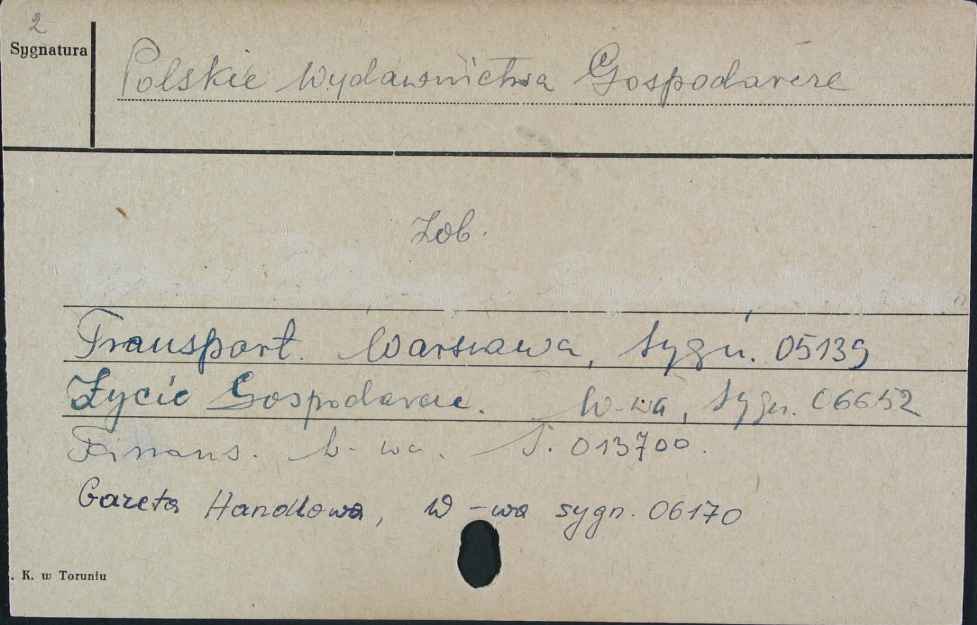 2
Sygnatura
Polskie Wydawnictwa Gospodarcze
Zob.
Transport. Warszawa, Sygn. 05139
Życie Gospodarcze. W-wa, Sygn. 06652
Finans. W-wa. S. 013700.
Gazeta Handlowa, W-wa sygn. 06170
. K. w Toruniu